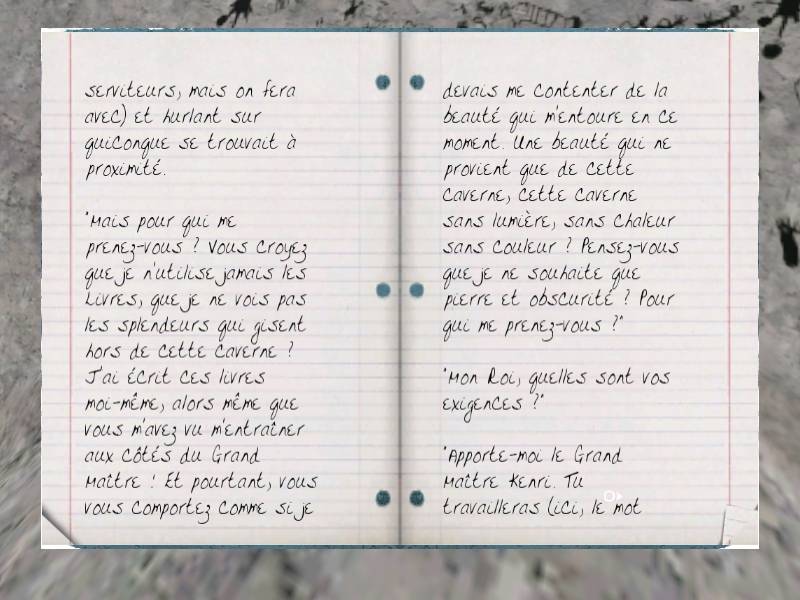 serviteurs, mais on fera
avec) et hurlant sur
quiconque se trouvait à
proximité.
"Mais pour qui me
prenez-vous ? Vous croyez
que je n'utilise jamais les
Livres, que je ne vois pas
les splendeurs qui gisent
hors de cette caverne ?
J'ai écrit ces livres
moi-même, alors même que
vous m'avez vu m'entraîner
aux côtés du Grand
Maître ! Et pourtant, vous
vous comportez comme si je
devais me contenter de la
beauté qui m'entoure en ce
moment. Une beauté qui ne
provient que de cette
caverne, cette caverne
sans lumière, sans chaleur
sans couleur ? Pensez-vous
que je ne souhaite que
pierre et obscurité ? Pour
qui me prenez-vous ?"
"Mon Roi, quelles sont vos
exigences ?"
"Apporte-moi le Grand
Maître Kenri. Tu
travailleras (ici, le mot